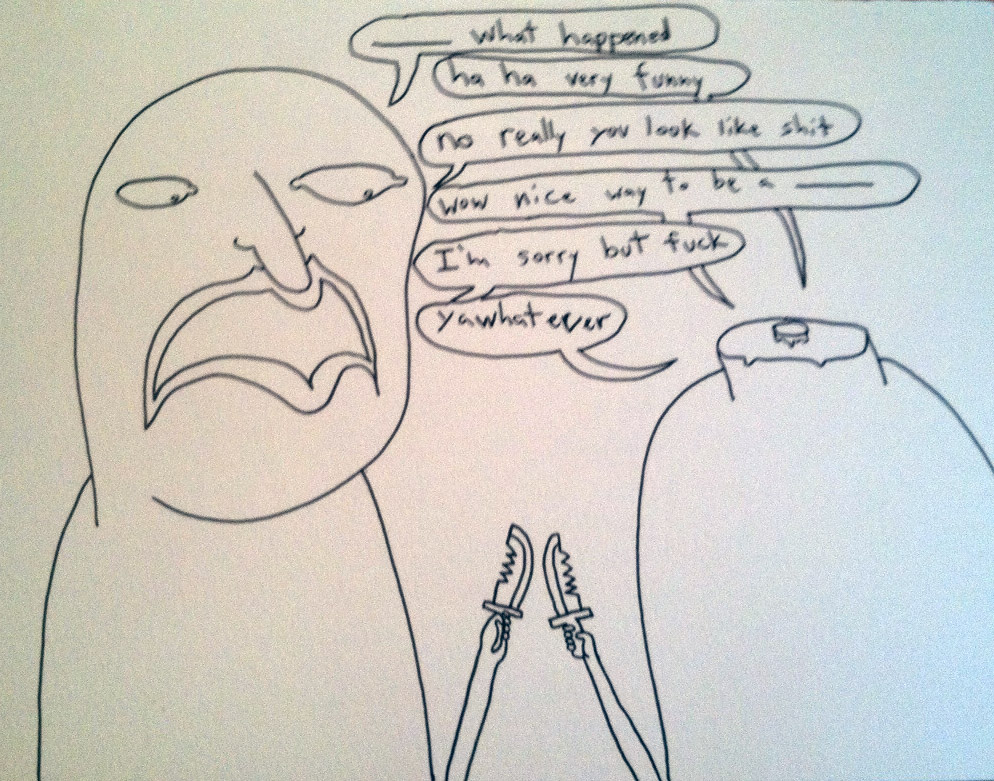 what happened
ha ha very funny
no really you look like shit
wow nice way to be a
I'm sorry but fuck
yawhatever